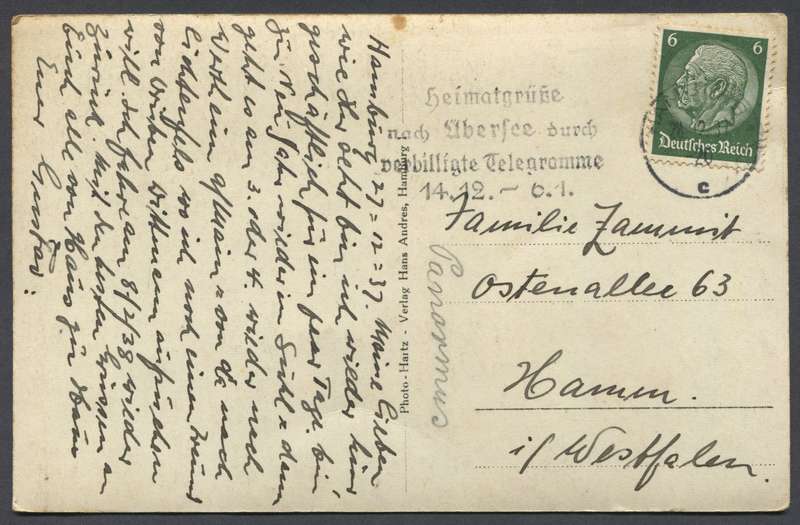 6 6
Deutsches Reich
Heimatgrüße
nach Übersee durch
verbilligte Telegramme
14.12.– 6.1.
c
Familie Zammit
Ostenallee 63
Hamm.
i/ Westfalen.
Panormus
Photo-Hartz - Verlag Hans Andres, Hamburg
Hamburg 27=12=37. Meine Lieben
wie Ihr seht bin ich wieder hier
geschäftlich für ein paar Tage. bin
zu Neujahr wieder in Suhl u dann
geht es am 3. oder 4. wieder nach
a/Main u von da nach
Lichtenfels wo ich noch einen Freund
von aufsuchen
will. Ich fahre am 8/1/38 wieder
zurück. Mit den besten Grüssen an
Euch alle von Haus zu Haus
Euer Gustav.